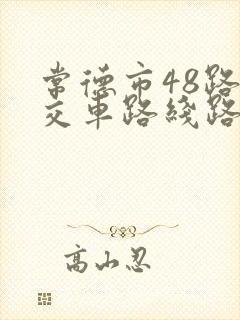 常德市48路
交车路线路
高山忍